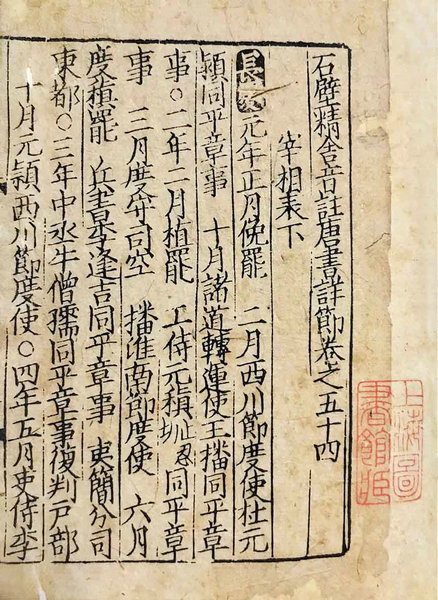 石壁精舍音註唐書詳節卷之五十四
宰相表下
長慶元年正月俛罷　二月西川節度使杜元
頴同平章事　十月諸道轉運使王播同平章
事○二年二月植罷　工侍元稹止忍同平章
事　三月度守司空　播淮南節度使　六月
度稹罷　兵書李逢吉同平章事　夷簡分司
東都○三年中丞牛僧孺同平章事復判戸部
十月元頴西川節度使○四年五月吏侍李
上海圖
書館藏